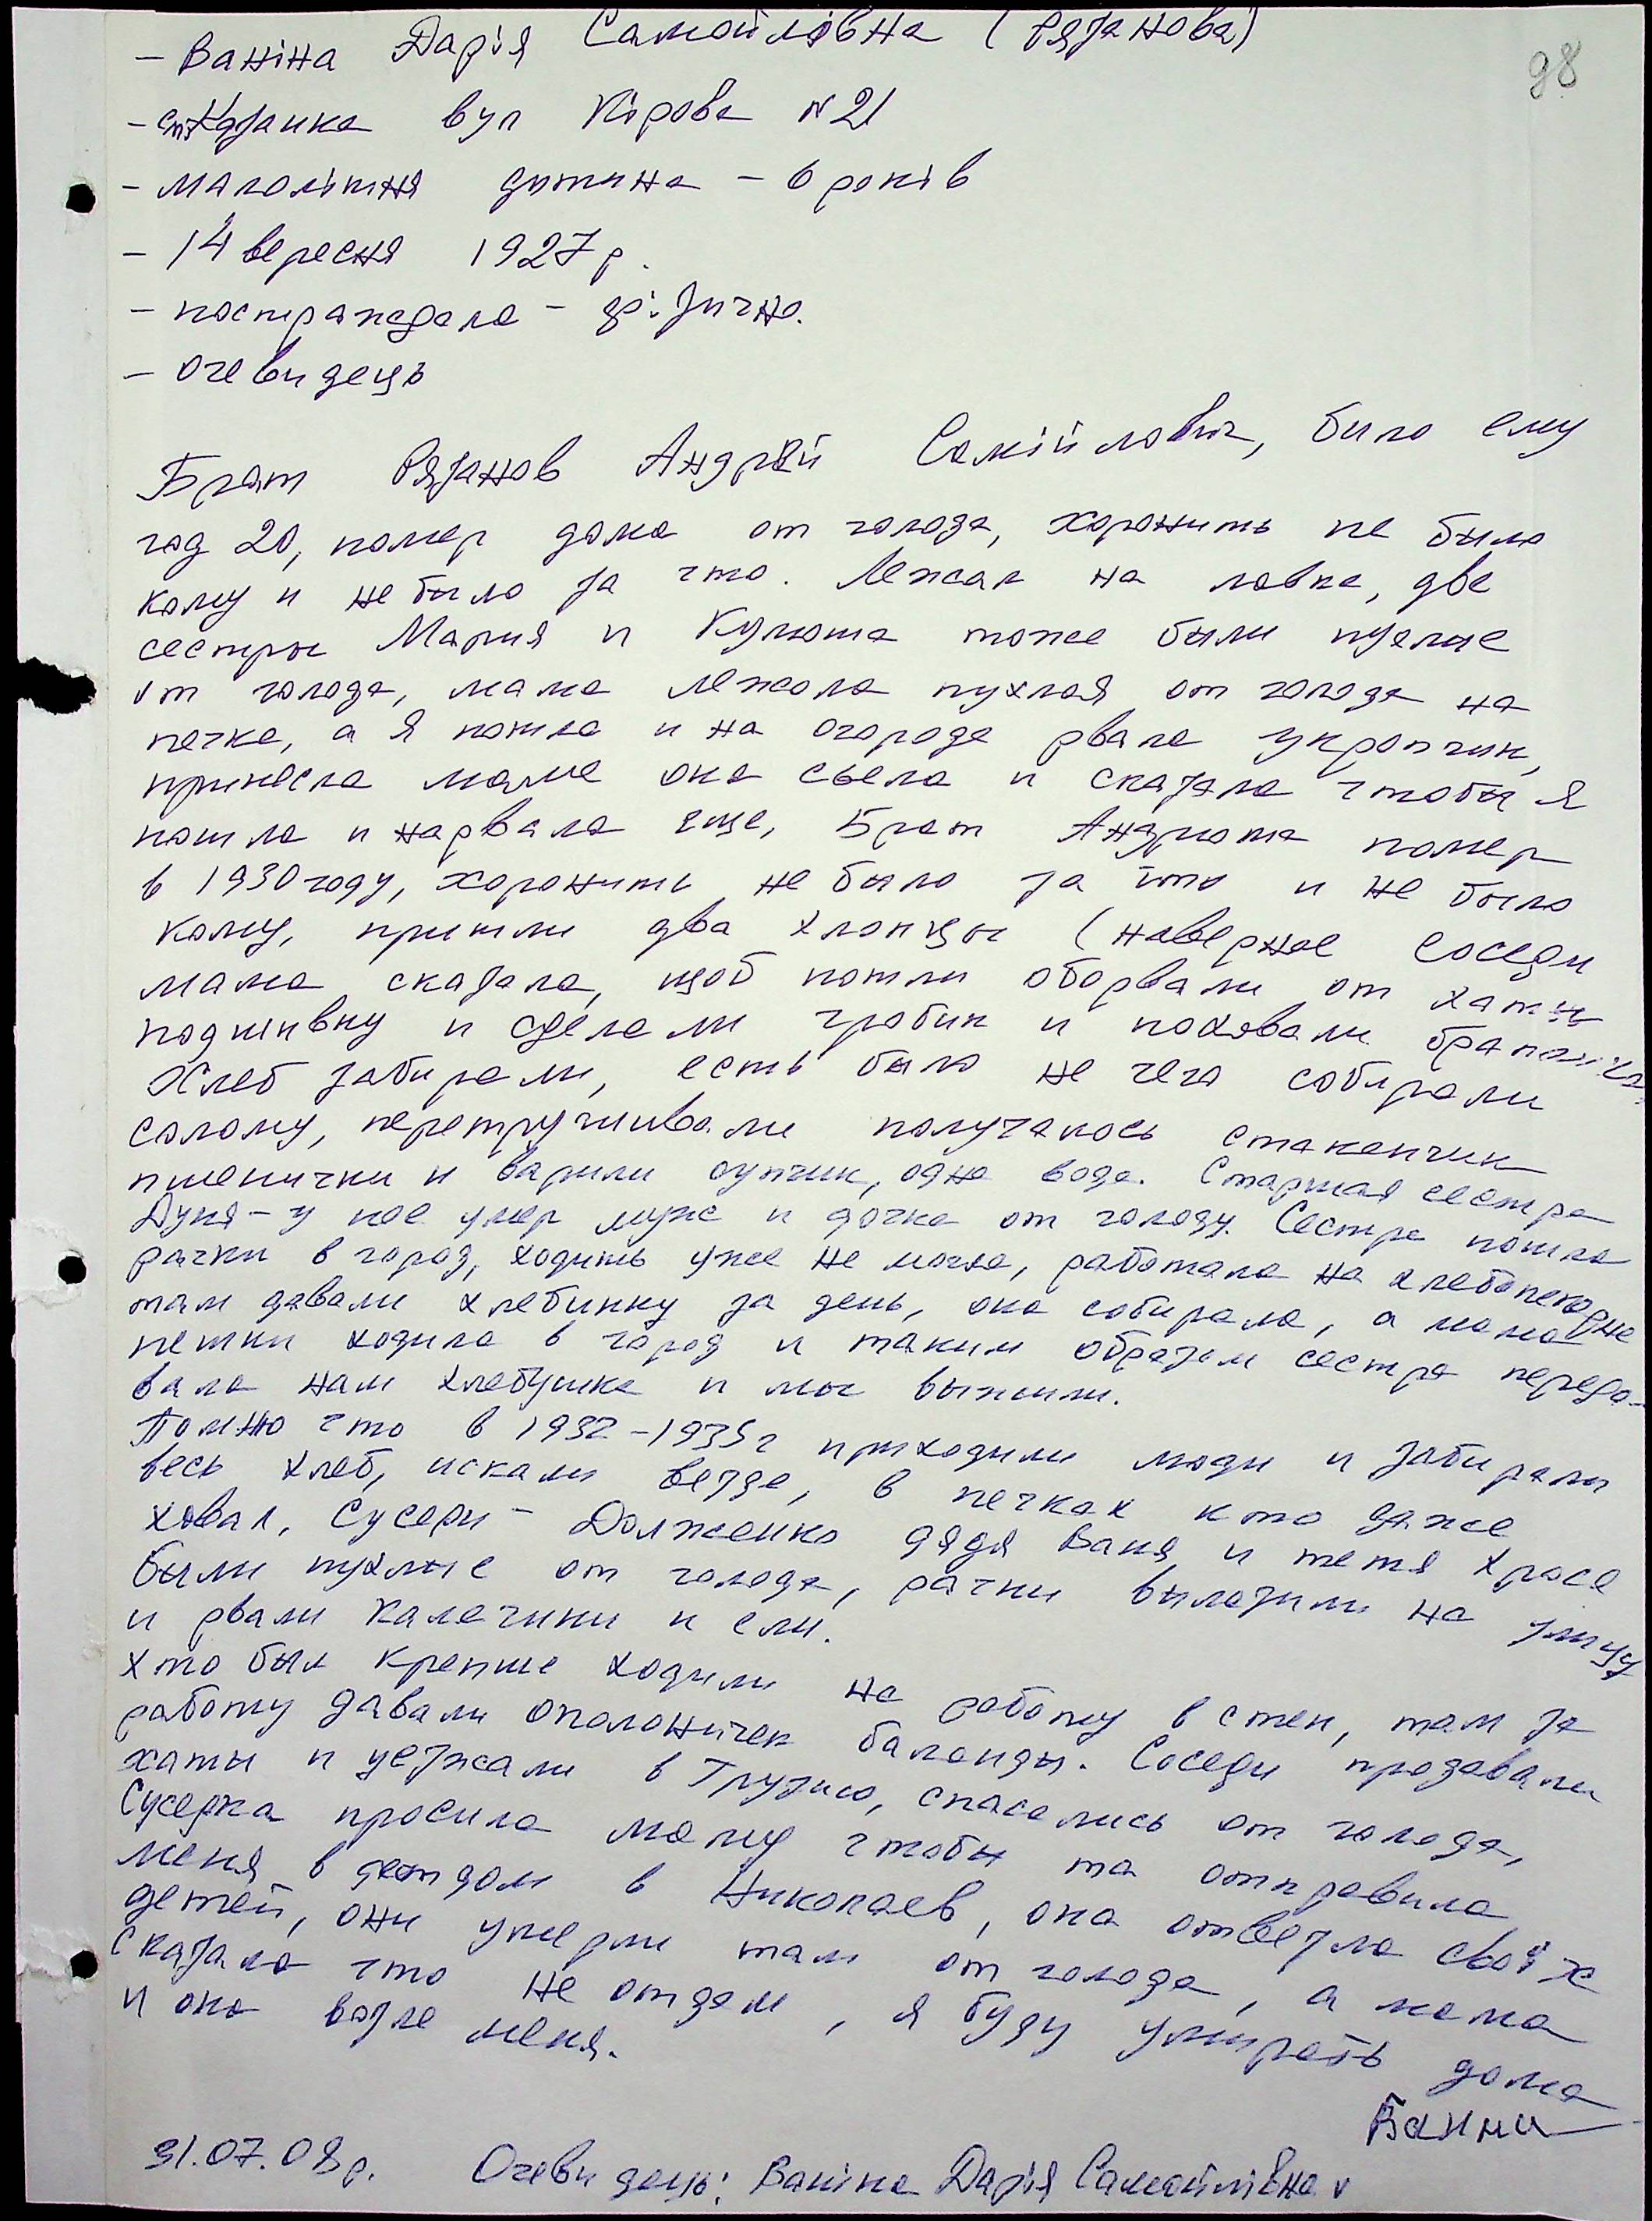 98
– Ваніна Дарія Самойлівна (Рязанова)
– смт Казанка вул Кірова №21
– малолітня дитина – 6 років
– 14 вересня 1927 р.
– постраждала – фізично.
– очевидець
Брат Рязанов Андрій Самійлович, было ему
год 20, помер дома от голода, хоронить не было
кому и не было за что. Лежал на лавке, две
сестры Мария и Кулюша тоже были пухлые
от голода, мама лежала пухлая от голода на
печке, а я пошла и на огороде рвала укропчик,
принесла маме она съела и сказала чтобы я
пошла и нарвала еще, Брат Андрюша помер
в 1930 году, хоронить не было за што и не было
кому, пришли два хлопцы (наверное соседи
мама сказала, щоб пошли обарвали от хаты
подшивку и сделали гробик и поховали братика.
Хлеб забирали, есть было не чего собирали
солому, перетручивали получалось стаканчик
пшенички и варили супчик, одна вода. Старшая сестра
Дуня – у нее умер муж и дочка от голоду. Сестра пошла
рачки в город, ходить уже не могла, работала на хлебопекарне
там давали хлебинку за день, она собирала, а мама
пешки ходила в город и таким образом сестра переда-
вала нам хлебушка и мы выжили.
Помню что в 1932-1933 г приходили люди и забирали
весь хлеб, искали везде, в печках кто даже
ховал, Сусєди – Долженко дядя Ваня и тетя Хрося
были пухлые от голода, рачки вылазили на улицу
и рвали калачики и ели.
Хто был крепше ходили на работу в степ, там за
работу давали ополоничек баланды. Соседи продавали
хаты и уезжали в Грузию, спасались от голода,
Суседка просила маму чтобы та отправила
меня в детдом в Николаев, она отвезла своїх
детей, они умерли там от голода, а мама
сказала что не отдам, я буду умирать дома
и она возле меня.
Ванина
31.07.08р. Очевидець: Ваніна Дарія Самойлівна